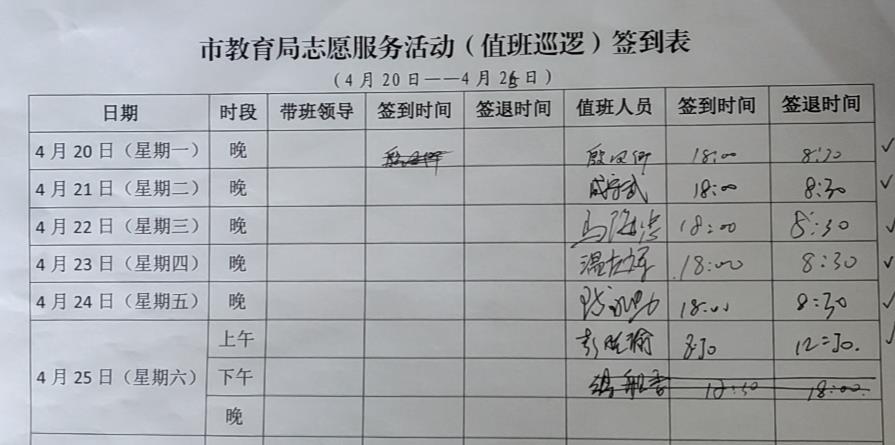 市教育局志愿服务活动（值班巡逻）签到表
（4月20日——4月26日）
日期 时段 带班领导 签到时间 签退时间 值班人员 签到时间 签退时间
4月20日（星期一） 晚 18:00 8:30 ✓
4月21日（星期二） 晚 18:00 8:30 ✓
4月22日（星期三） 晚 18:00 8:30 ✓
4月23日（星期四） 晚 18:00 8:30 ✓
4月24日（星期五） 晚 18:00 8:30 ✓
4月25日（星期六） 上午 8:30 12:30. ✓
下午 18:00.
晚